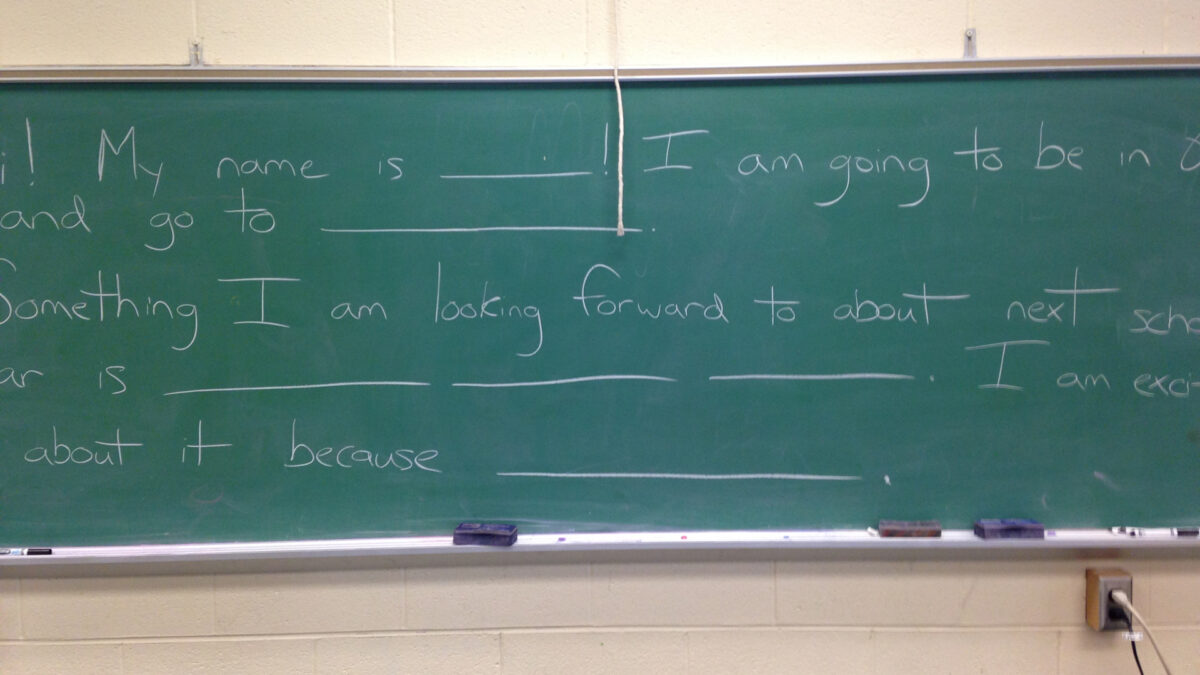 i! My name is ____! I am going to be in
and go to ____.
Something I am looking forward to about next sch
ar is ____ ____ ____. I am exci
about it because ____.